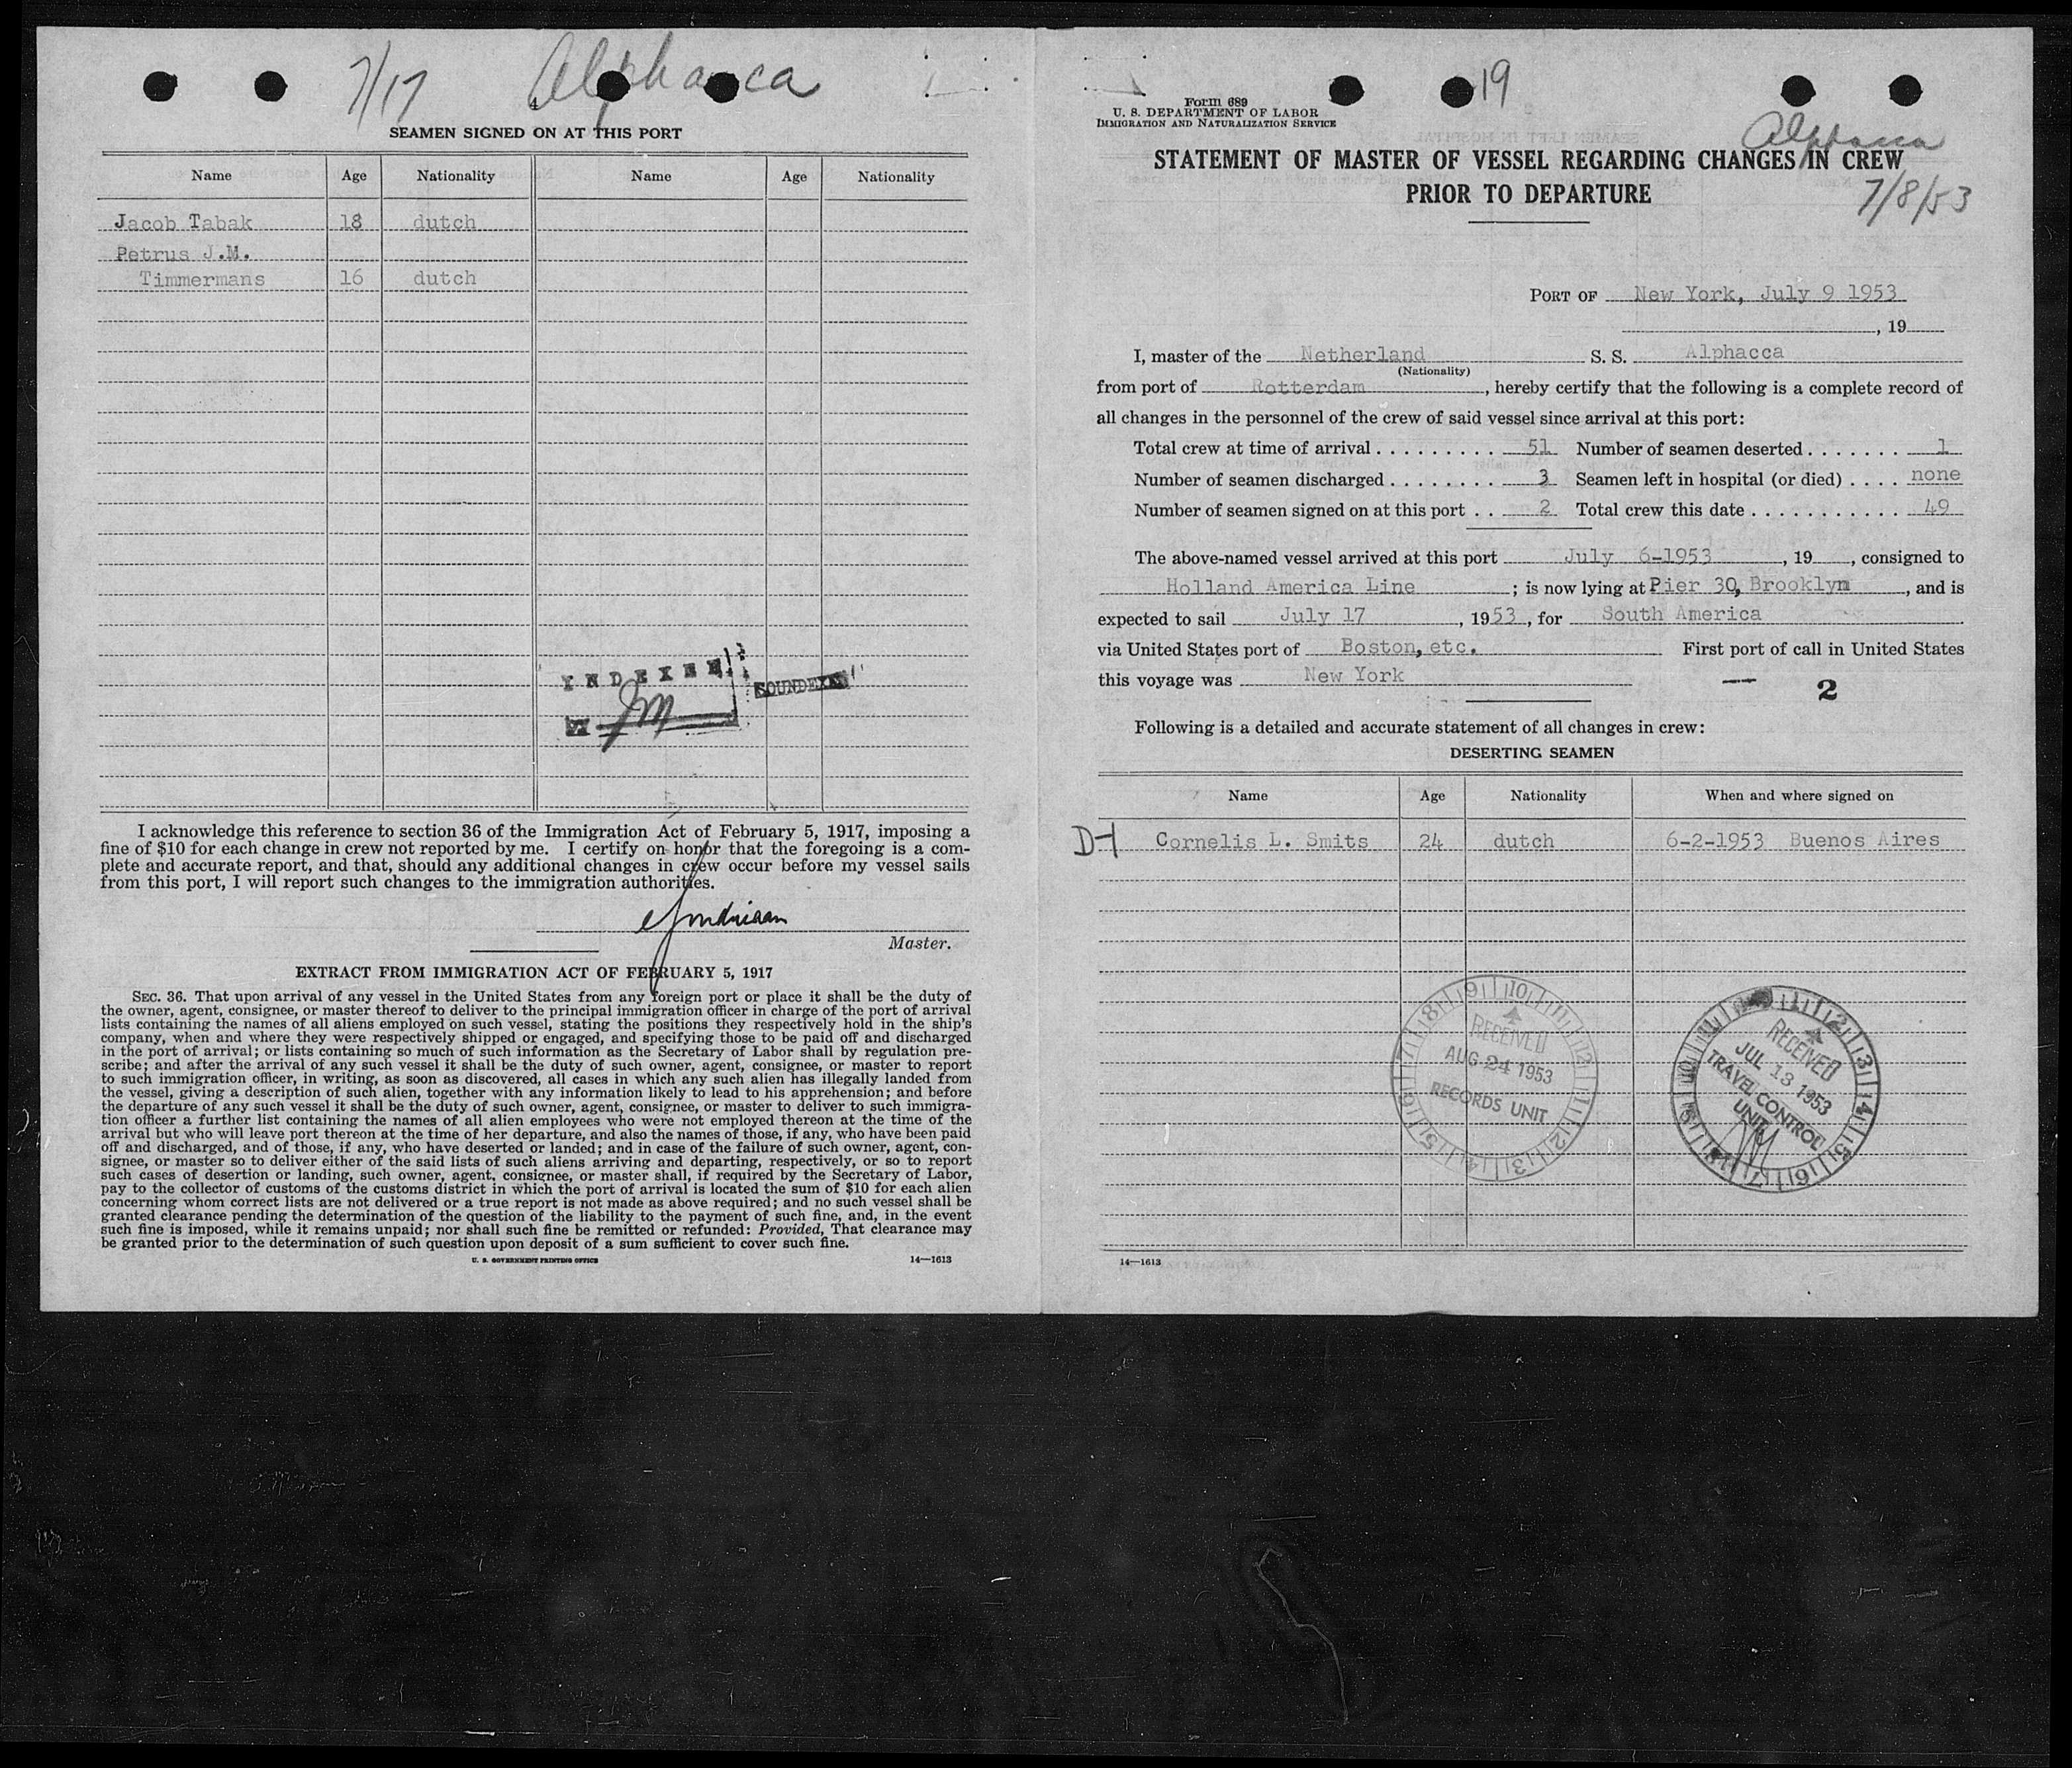 7/17 Alphacca
4
SEAMEN SIGNED ON AT THIS PORT
Name Age Nationality Name Age Nationality
Jacob Tabak 18 dutch
Petrus J.M.
Timmermans 16 dutch
INDEXED
SOUNDEXED
I acknowledge this reference to section 36 of the Immigration Act of February 5, 1917, imposing a
fine of $10 for each change in crew not reported by me. I certify on honor that the foregoing is a com-
plete and accurate report, and that, should any additional changes in crew occur before my vessel sails
from this port, I will report such changes to the immigration authorities.
Master.
EXTRACT FROM IMMIGRATION ACT OF FEBRUARY 5, 1917
SEC. 36. That upon arrival of any vessel in the United States from any foreign port or place it shall be the duty of
the owner, agent, consignee, or master thereof to deliver to the principal immigration officer in charge of the port of arrival
lists containing the names of all aliens employed on such vessel, stating the positions they respectively hold in the ship's
company, when and where they were respectively shipped or engaged, and specifying those to be paid off and discharged
in the port of arrival; or lists containing so much of such information as the Secretary of Labor shall by regulation pre-
scribe; and after the arrival of any such vessel it shall be the duty of such owner, agent, consignee, or master to report
to such immigration officer, in writing, as soon as discovered, all cases in which any such alien has illegally landed from
the vessel, giving a description of such alien, together with any information likely to lead to his apprehension; and before
the departure of any such vessel it shall be the duty of such owner, agent, consignee, or master to deliver to such immigra-
tion officer a further list containing the names of all alien employees who were not employed thereon at the time of the
arrival but who will leave port thereon at the time of her departure, and also the names of those, if any, who have been paid
off and discharged, and of those, if any, who have deserted or landed; and in case of the failure of such owner, agent, con-
signee, or master so to deliver either of the said lists of such aliens arriving and departing, respectively, or so to report
such cases of desertion or landing, such owner, agent, consignee, or master shall, if required by the Secretary of Labor,
pay to the collector of customs of the customs district in which the port of arrival is located the sum of $10 for each alien
concerning whom correct lists are not delivered or a true report is not made as above required; and no such vessel shall be
granted clearance pending the determination of the question of the liability to the payment of such fine, and, in the event
such fine is imposed, while it remains unpaid; nor shall such fine be remitted or refunded: Provided, That clearance may
be granted prior to the determination of such question upon deposit of a sum sufficient to cover such fine.
U. S. GOVERNMENT PRINTING OFFICE 14—1613
19
Form 689
U. S. DEPARTMENT OF LABOR
IMMIGRATION AND NATURALIZATION SERVICE
Alphacca
STATEMENT OF MASTER OF VESSEL REGARDING CHANGES IN CREW
PRIOR TO DEPARTURE
7/8/53
PORT OF New York, July 9 1953
, 19
I, master of the Netherland S. S. Alphacca
(Nationality)
from port of Rotterdam, hereby certify that the following is a complete record of
all changes in the personnel of the crew of said vessel since arrival at this port:
Total crew at time of arrival . . . . . . . . . 51 Number of seamen deserted . . . . . . . 1
Number of seamen discharged . . . . . . . . 3 Seamen left in hospital (or died) . . . . none
Number of seamen signed on at this port . . 2 Total crew this date . . . . . . . . . . . 49
The above-named vessel arrived at this port July 6-1953, 19, consigned to
Holland America Line; is now lying at Pier 30, Brooklyn, and is
expected to sail July 17, 1953, for South America
via United States port of Boston, etc. First port of call in United States
this voyage was New York — 2
Following is a detailed and accurate statement of all changes in crew:
DESERTING SEAMEN
Name Age Nationality When and where signed on
D-1 Cornelis L. Smits 24 dutch 6-2-1953 Buenos Aires
RECEIVED
AUG 24 1953
RECORDS UNIT
RECEIVED
JUL 13 1953
TRAVEL CONTROL
UNIT
14—1613